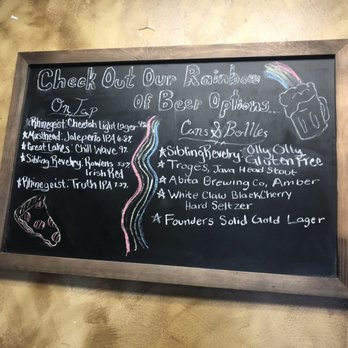 Check Out Our Rainbow
Of Beer Options...
On Tap
Rhinegeist: Cheetah Light Lager
Masthead: Jalepeño IPA
Great Lakes: Chill Wave
Sibling Revelry: Rowens
Irish Red
Rhinegeist: Truth IPA
Cans & Bottles
Sibling Revelry: Olly Olly
Gluten Free
Troegs, Java Head Stout
Abita Brewing Co, Amber
White Claw Black Cherry
Hard Seltzer
Founders Solid Gold Lager